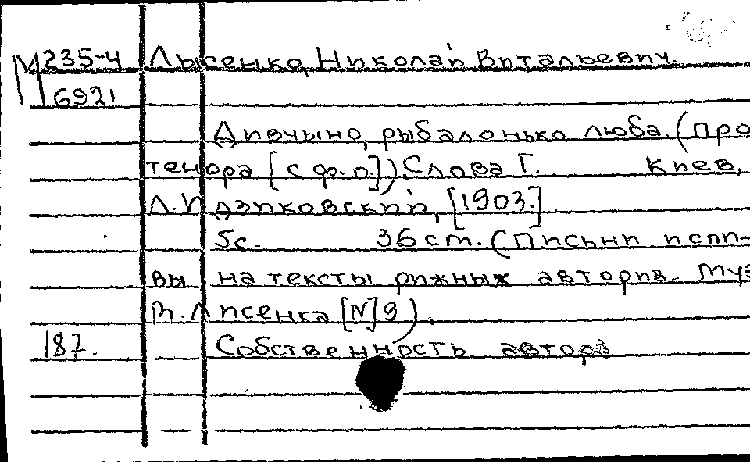 М 235-4 Лысенко, Николай Витальевич.
6921
Дивчыно, рыбалонько люба. (Про
тенора [с ф.о.]) Слова Г. Киев,
Л. Идзиковский, [1903.]
5с. 36 ст. (Письни испи-
вы на тексты рижных авторив. Муз
М. Лисенка [N] 9).
187. Собственность автора